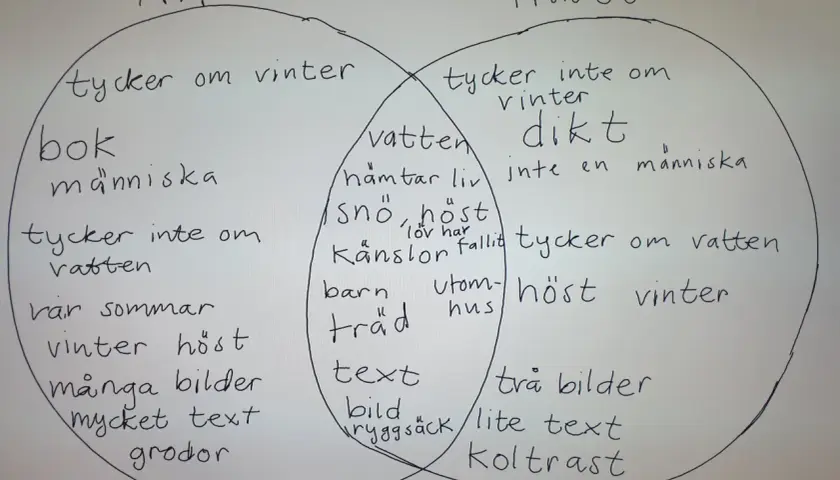 tycker om vinter
bok
människa
tycker inte om
vatten
vår sommar
vinter höst
många bilder
mycket text
grodor
vatten
hämtar liv
snö, höst
löv har
fallit
känslor
barn
utom-
hus
träd
text
bild
ryggsäck
tycker inte om
vinter
dikt
inte en människa
tycker om vatten
höst vinter
två bilder
lite text
koltrast